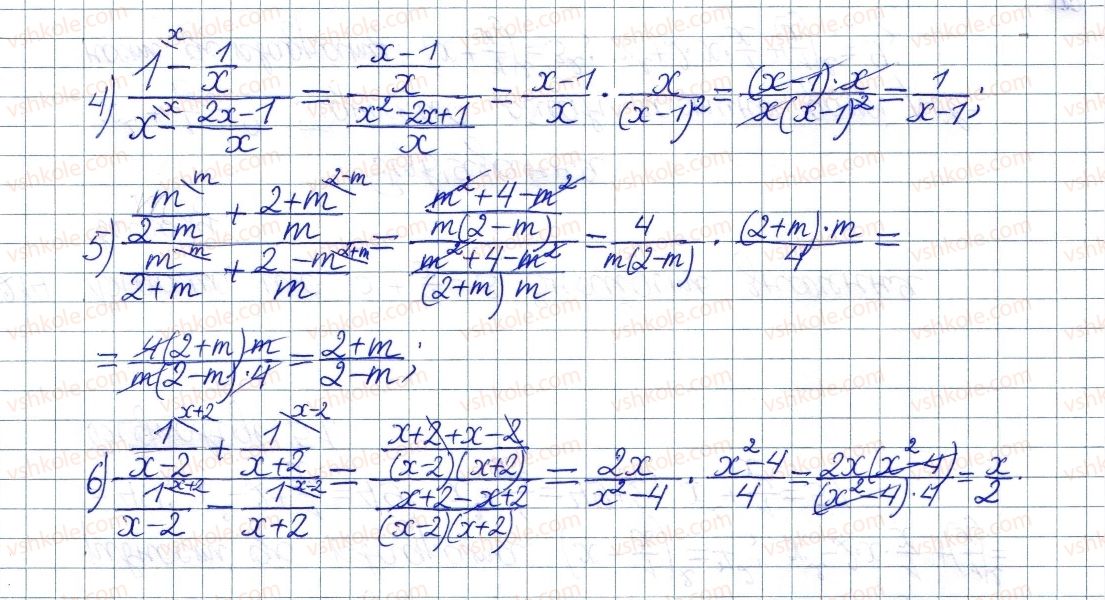 4) (1 - 1/x)/(x - (2x-1)/x) = ((x-1)/x)/((x²-2x+1)/x) = (x-1)/x · x/(x-1)² = ((x-1)·x)/(x(x-1)²) = 1/(x-1);
5) (m/(2-m) + (2+m)/m)/(m/(2+m) + (2-m)/m) = ((m²+4-m²)/(m(2-m)))/((m²+4-m²)/((2+m)m)) = 4/(m(2-m)) · ((2+m)·m)/4 =
= (4(2+m)m)/(m(2-m)·4) = (2+m)/(2-m);
6) (1/(x-2) + 1/(x+2))/(1/(x-2) - 1/(x+2)) = ((x+2+x-2)/((x-2)(x+2)))/((x+2-x+2)/((x-2)(x+2))) = 2x/(x²-4) · (x²-4)/4 = (2x(x²-4))/((x²-4)·4) = x/2.